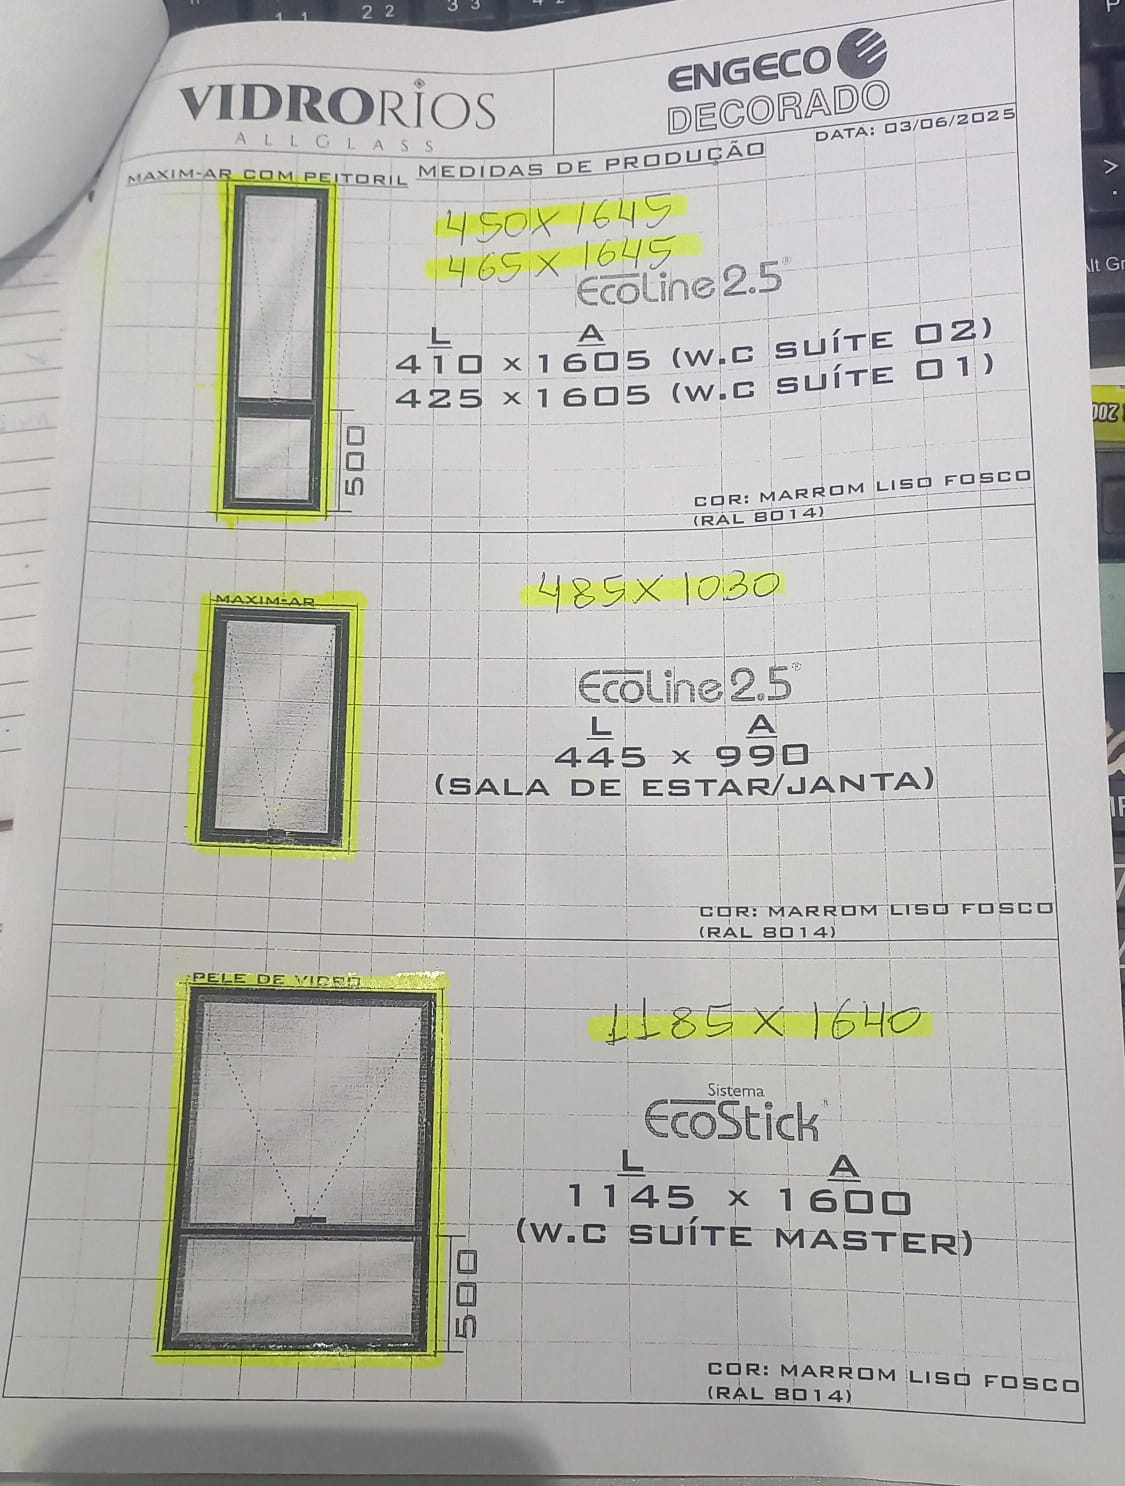 VIDRORIOS
ALLGLASS
ENGECO
DECORADO
DATA: 03/06/2025
MEDIDAS DE PRODUÇÃO
MAXIM-AR COM PEITORIL
450X1645
465X1645
EcoLine 2.5®
L A
410 x 1605 (W.C SUÍTE 02)
425 x 1605 (W.C SUÍTE 01)
500
COR: MARROM LISO FOSCO
(RAL 8014)
MAXIM-AR
485X1030
EcoLine 2.5®
L A
445 x 990
(SALA DE ESTAR/JANTA)
COR: MARROM LISO FOSCO
(RAL 8014)
PELE DE VIDRO
1185X1640
Sistema
EcoStick
L A
1145 x 1600
(W.C SUÍTE MASTER)
500
COR: MARROM LISO FOSCO
(RAL 8014)
2 2
3 3
lt Gr
200